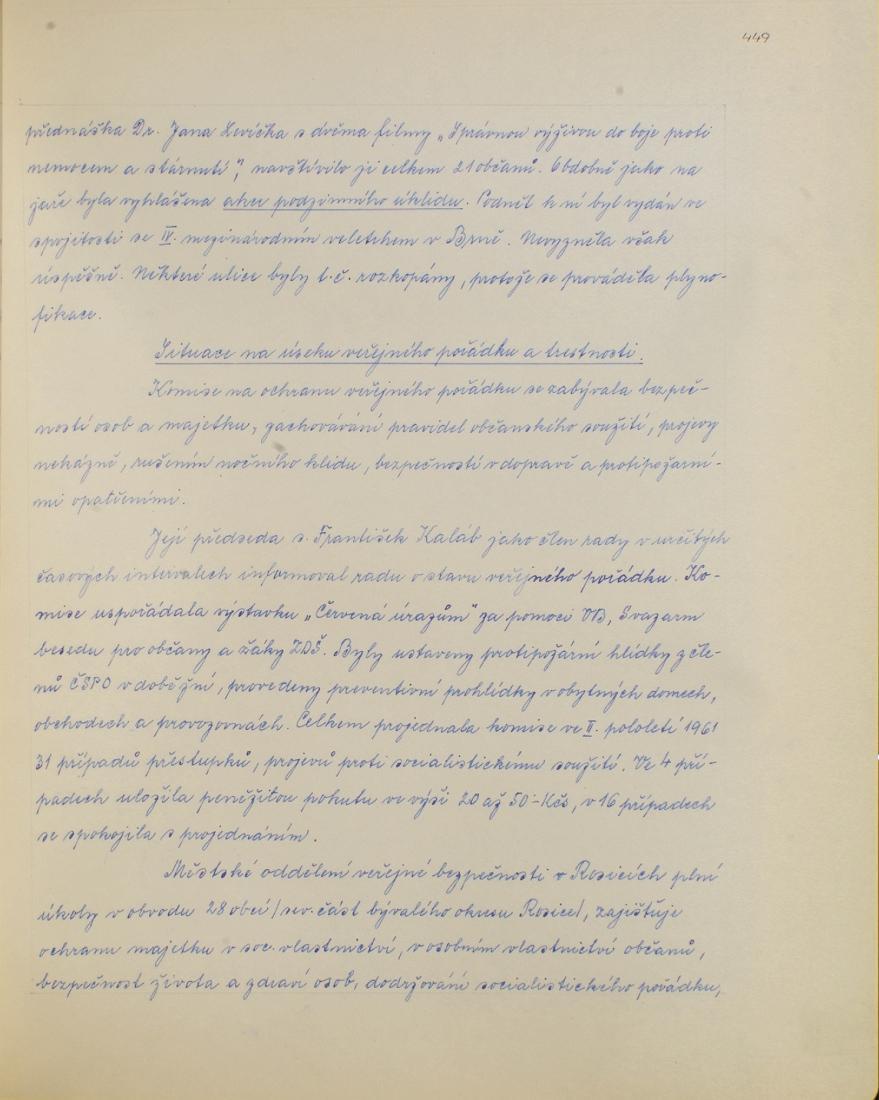 449
přednáška Dr. Jana Levíčka s dvěma filmy „Správnou výživou do boje proti
nemocem a stárnutí", navštívilo ji celkem 21 občanů. Obdobně jako na
jaře byla vyhlášena akce podzimního úklidu. Podnět k ní byl vydán ve
spojitosti se IV. mezinárodním veletrhem v Brně. Nevyzněla však
úspěšně. Některé ulice byly t.č. rozkopány, protože se prováděla plyno-
fikace.
Situace na úseku veřejného pořádku a trestnosti.
Komise na ochranu veřejného pořádku se zabývala bezpeč-
ností osob a majetku, zachovávání pravidel občanského soužití, projevy
nekázně, rušením nočního klidu, bezpečností v dopravě a protipožární-
mi opatřeními.
Její předseda s. František Kaláb jako člen rady v určitých
časových intervalech informoval radu o stavu veřejného pořádku. Ko-
mise uspořádala výstavku „Červená úrazům" za pomoci VB, Svazarm
besedu pro občany a žáky ZDŠ. Byly ustaveny protipožární hlídky z čle-
nů ČSPO v době žní, provedeny preventivní prohlídky v obytných domech,
obchodech a provozovnách. Celkem projednala komise ve II. pololetí 1961
31 případů přestupků, projevů proti socialistickému soužití. Ve 4 pří-
padech uložila peněžitou pokutu ve výši 20 až 50.- Kčs, v 16 případech
se spokojila s projednáním.
Městské oddělení veřejné bezpečnosti v Rosicích plní
úkoly v obvodu 28 obcí /sev. část bývalého okresu Rosice/, zajištuje
ochranu majetku v soc. vlastnictví, v osobním vlastnictví občanů,
bezpečnost života a zdraví osob, dodržování socialistického pořádku,